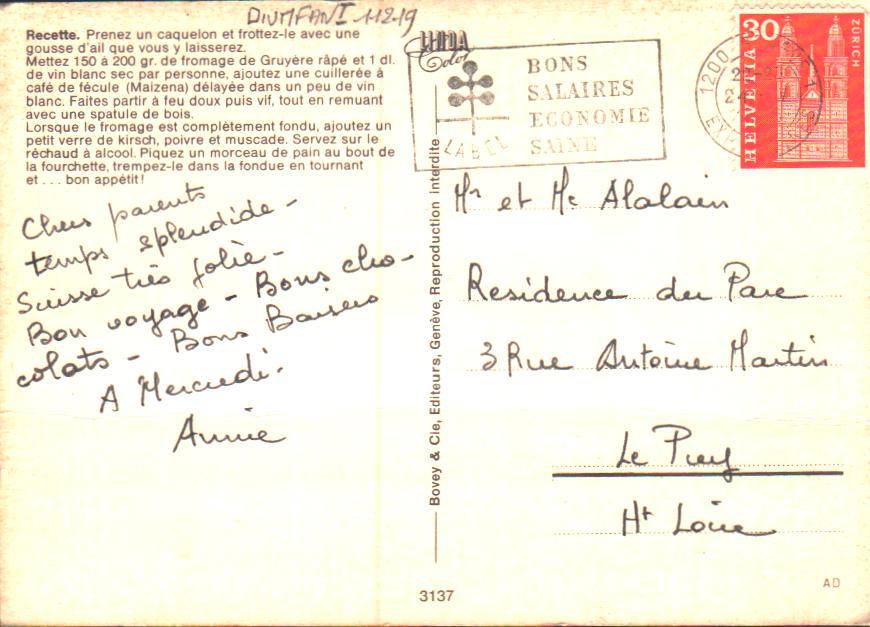 DIUMFANI 11219
Recette. Prenez un caquelon et frottez-le avec une
gousse d'ail que vous y laisserez.
Mettez 150 à 200 gr. de fromage de Gruyère râpé et 1 dl.
de vin blanc sec par personne, ajoutez une cuillerée à
café de fécule (Maizena) délayée dans un peu de vin
blanc. Faites partir à feu doux puis vif, tout en remuant
avec une spatule de bois.
Lorsque le fromage est complètement fondu, ajoutez un
petit verre de kirsch, poivre et muscade. Servez sur le
réchaud à alcool. Piquez un morceau de pain au bout de
la fourchette, trempez-le dans la fondue en tournant
et . . . bon appétit!
Chers parents
temps splendide -
Suisse très jolie -
Bon voyage - Bons cho-
colats - Bons Baisers
A Mercredi.
Annie
LINDA
Color
LABEL
BONS
SALAIRES
ECONOMIE
SAINE
1200
30
HELVETIA
ZÜRICH
Bovey & Cie, Editeurs, Genève, Reproduction interdite
Mr et Me Alalain
Residence du Parc
3 Rue Antoine Martin
Le Puy
Ht Loire
3137
AD